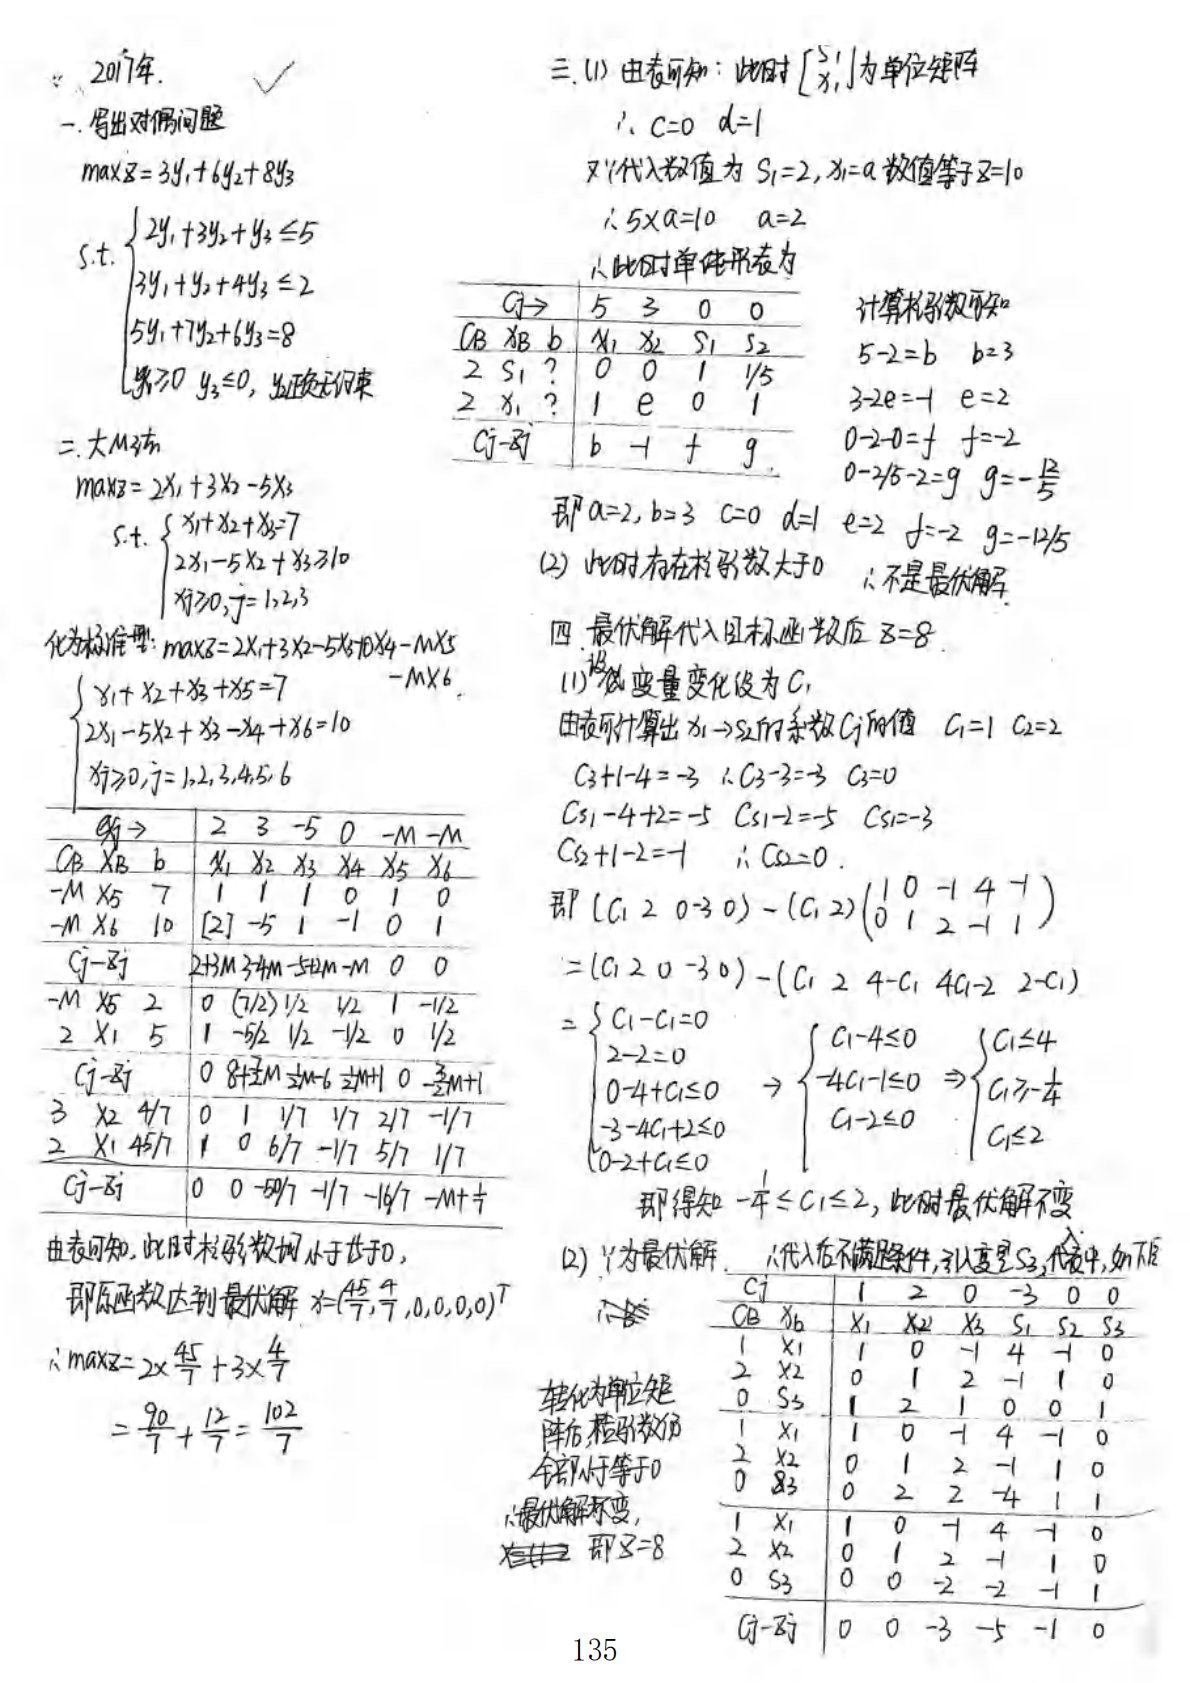 2017年.
一. 写出对偶问题
maxz=3y₁+6y₂+8y₃
s.t. { 2y₁+3y₂+y₃≤5
3y₁+y₂+4y₃≤2
5y₁+7y₂+6y₃=8
y₁≥0 y₃≤0, y₂正负无约束
二. 大M法
maxz=2x₁+3x₂-5x₃
s.t. { x₁+x₂+x₃=7
2x₁-5x₂+x₃≥10
xj≥0, j=1,2,3
化为标准型: maxz=2x₁+3x₂-5x₃+0x₄-Mx₅
-Mx₆.
{ x₁+x₂+x₃+x₅=7
2x₁-5x₂+x₃-x₄+x₆=10
xj≥0, j=1,2,3,4,5,6
Cj→ 2 3 -5 0 -M -M
CB XB b x₁ x₂ x₃ x₄ x₅ x₆
-M x₅ 7 1 1 1 0 1 0
-M x₆ 10 [2] -5 1 -1 0 1
Cj-Zj 2+3M 3-4M -5+2M -M 0 0
-M x₅ 2 0 (7/2) 1/2 1/2 1 -1/2
2 x₁ 5 1 -5/2 1/2 -1/2 0 1/2
Cj-Zj 0 8+7/2M 1/2M-6 1/2M+1 0 -3/2M+1
3 x₂ 4/7 0 1 1/7 1/7 2/7 -1/7
2 x₁ 45/7 1 0 6/7 -1/7 5/7 1/7
Cj-Zj 0 0 -50/7 -1/7 -16/7 -M+1/7
由表可知, 此时检验数均小于等于0,
即原函数达到最优解 x=(45/7, 4/7, 0,0,0,0)ᵀ
∴maxz=2×45/7+3×4/7
=90/7+12/7=102/7
三. (1) 由表可知: 此时[S₁ x₁]为单位矩阵
∴ c=0 d=1
又∵代入数值为 S₁=2, x₁=a 数值等于z=10
∴5×a=10 a=2
∴此时单纯形表为
Cj→ 5 3 0 0
CB XB b x₁ x₂ S₁ S₂
2 S₁ ? 0 0 1 1/5
2 x₁ ? 1 e 0 1
Cj-Zj b -1 f g.
计算检验数可知
5-2=b b=3
3-2e=-1 e=2
0-2-0=f f=-2
0-2/5-2=g g=-12/5
即 a=2, b=3 c=0 d=1 e=2 f=-2 g=-12/5
(2) 此时存在检验数大于0 ∴不是最优解.
四. 最优解代入目标函数后 z=8.
(1) 设 变量变化设为C₁
由表可计算出 x₁→S₂的系数Cj的值 C₁=1 C₂=2
C₃+1-4=-3 ∴C₃-3=-3 C₃=0
Cs₁-4+2=-5 Cs₁-2=-5 Cs₁=-3
Cs₂+1-2=-1 ∴Cs₂=0.
即 (C₁ 2 0 -3 0)-(C₁ 2)(1 0 -1 4 -1
0 1 2 -1 1)
=(C₁ 2 0 -3 0)-(C₁ 2 4-C₁ 4C₁-2 2-C₁)
= { C₁-C₁=0
2-2=0
0-4+C₁≤0
-3-4C₁+2≤0
0-2+C₁≤0
→ { C₁-4≤0
-4C₁-1≤0
C₁-2≤0
⇒ { C₁≤4
C₁≥-1/4
C₁≤2
即得知 -1/4≤C₁≤2, 此时最优解不变
(2) ∵为最优解. ∴代入后不满足条件, 引入变量S₃, 代入表中, 如下后
Cj 1 2 0 -3 0 0
CB Xb x₁ x₂ x₃ S₁ S₂ S₃
1 x₁ 1 0 -1 4 -1 0
2 x₂ 0 1 2 -1 1 0
0 S₃ 1 2 1 0 0 1
1 x₁ 1 0 -1 4 -1 0
2 x₂ 0 1 2 -1 1 0
0 S₃ 0 2 2 -4 1 1
1 x₁ 1 0 -1 4 -1 0
2 x₂ 0 1 2 -1 1 0
0 S₃ 0 0 -2 -2 -1 1
Cj-Zj 0 0 -3 -5 -1 0
转化为单位矩
阵后, 检验数仍
全部小于等于0
∴最优解不变,
即z=8
135